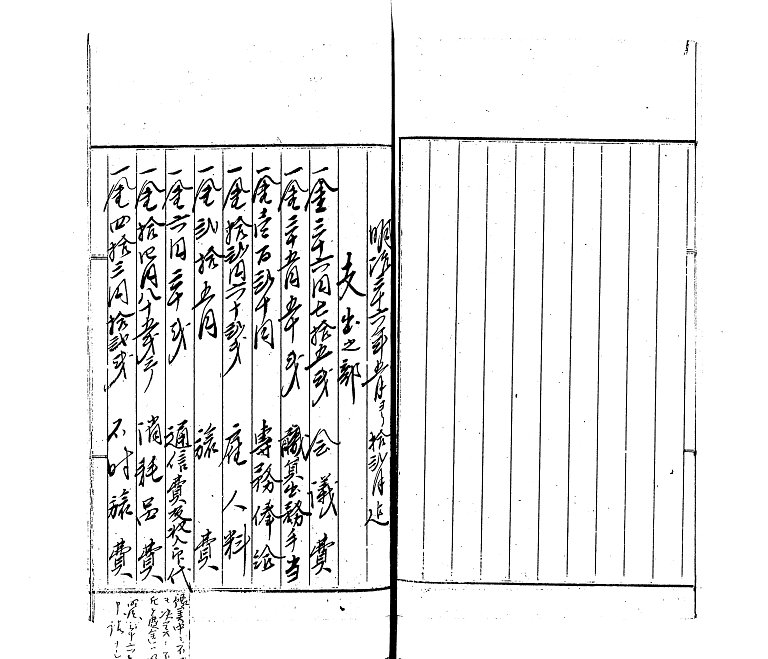 明治三十六年五月ヨリ拾弐月迄
支出之部
一金三十六円七拾五銭 会議費
一金三十五円五十銭 議員出務手当
一金壱百弐十円 専務俸給
一金拾弐円六十弐銭 雇人料
一金弐拾五円 旅費
一金六円三十銭 通信費及収入印代
一金拾四円八十五銭三 消耗品費
一金四拾三円拾弐銭 不时旅費